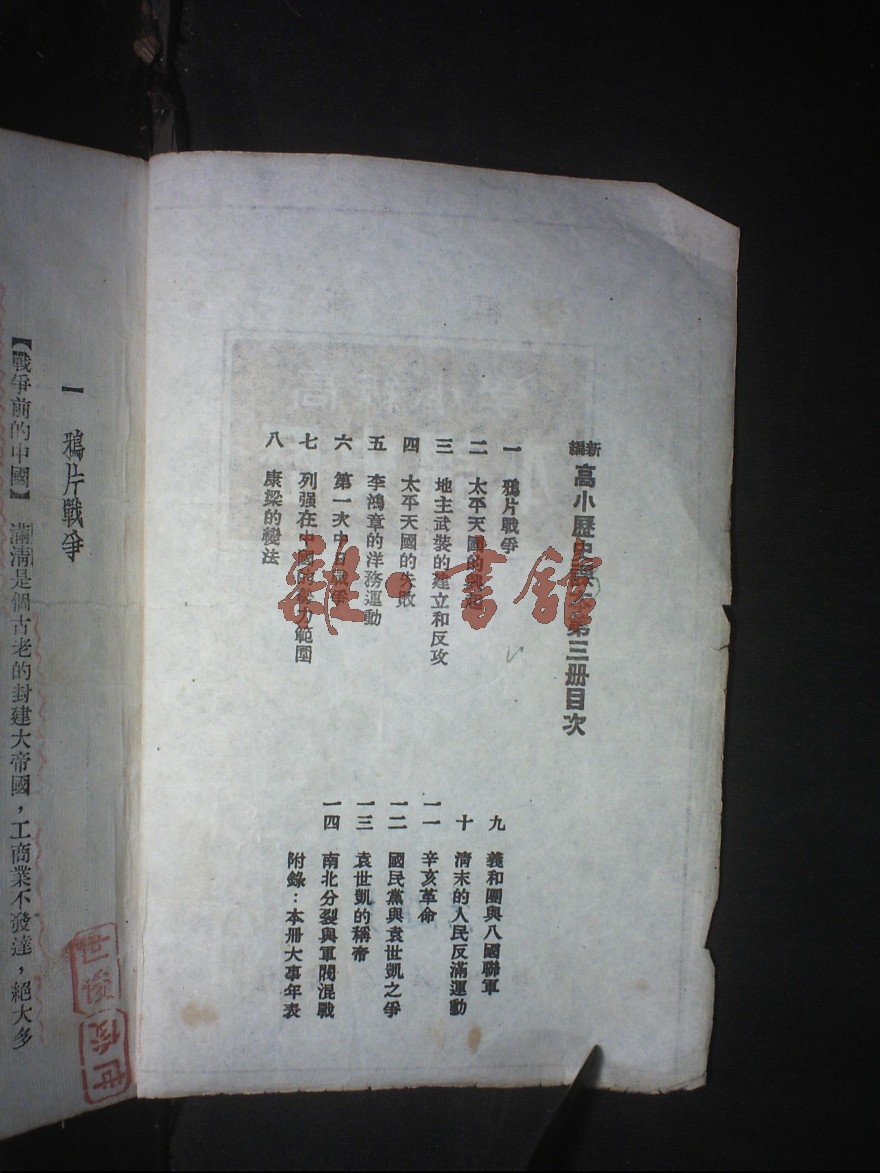 新編 高小歷史課本第三册目次
一 鴉片戰爭
二 太平天國的興起
三 地主武裝的建立和反攻
四 太平天國的失敗
五 李鴻章的洋務運動
六 第一次中日戰爭
七 列强在中國的勢力範圍
八 康梁的變法
九 義和團與八國聯軍
十 清末的人民反滿運動
一一 辛亥革命
一二 國民黨與袁世凱之爭
一三 袁世凱的稱帝
一四 南北分裂與軍閥混戰
附錄：本册大事年表
一 鴉片戰爭
【戰爭前的中國】 滿清是個古老的封建大帝國，工商業不發達，絕大多
雜·書館